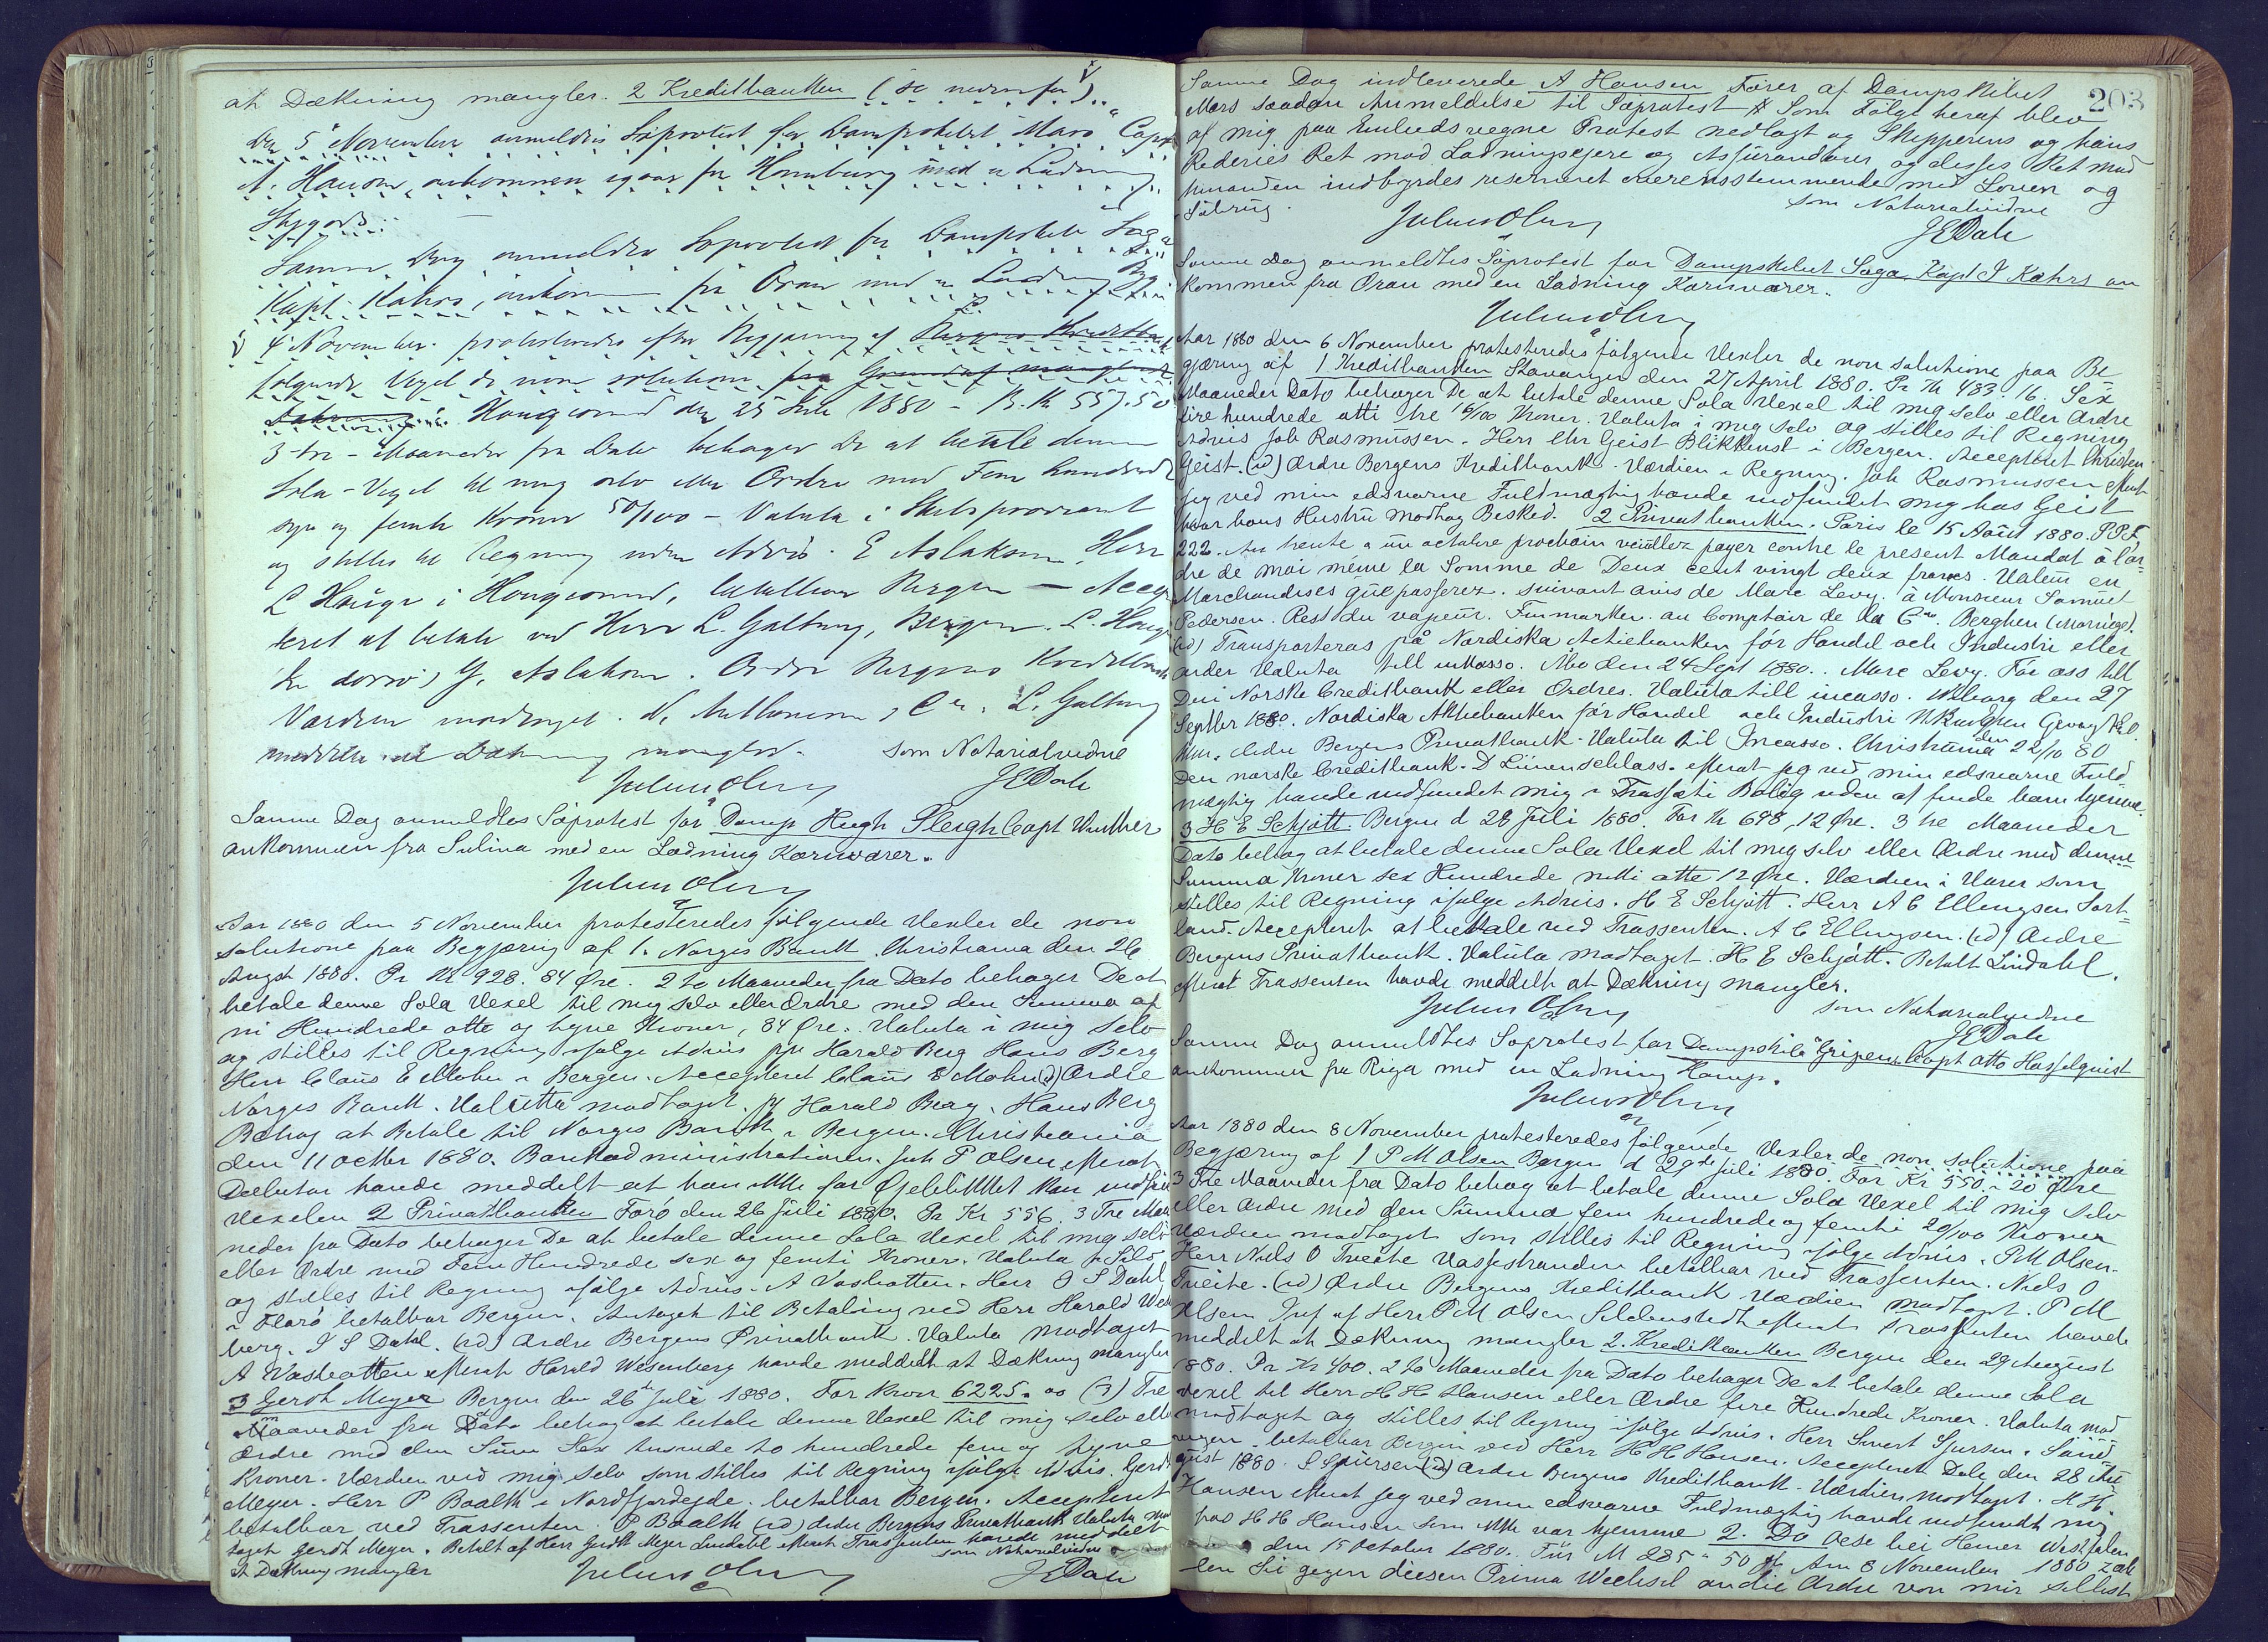 at Dækning mangler. 2 Kreditbanken (se nedenfor)
Den 5 November anmeldtes Søprotest for Dampskibet "Mars" Capt
A. Hansen, ankommen igaar fra Hamburg med en Ladning
Stygods.
Samme Dag anmeldtes Søprotest for Dampskib Saga
Kapt. Kahrs, ankommen fra Oran med en Ladning Byg
4 November protesteredes efter Begjæring af Bergens Kreditbank
følgende Vexel de non solutione paa Grund af manglende
Dækning: Haugesund den 25 Juli 1880 - B. Kr 557.50
3 tre - Maaneder fra Dato behager De at betale denne
Sola-Vexel til mig selv eller Ordre med Fem hundrede
syv og femti Kroner 50/100 - Valuta i Skibsproviant
og stilles til Regning uden Advis. E Aslaksen. Herr
L Hauge i Haugesund, betalbar Bergen - Accep
teret at betale ved Herr L. Galtung, Bergen. L. Hauge
(in dorso) E. Aslaksen. Ordre Bergens Kreditbank
Værdien modtaget. L. Galtung
meddelte at Dækning mangler. som Notarialvidne
Julius Olsen JEDahl
Samme Dag anmeldtes Søprotest for Damp Hugh Sleigh Capt Winther
ankommen fra Sulina med en Ladning Kornvarer.
Julius Olsen
Aar 1880 den 5 November protesteredes følgende Vexler de non
solutione paa Begjæring af 1. Norges Bank. Christiania den 26
Augst 1880. Pr Kr 928. 84 Øre. 2 to Maaneder fra Dato behager De at
betale denne Sola Vexel til mig selv eller Ordre med den Summa af
ni Hundrede otte og tyve Kroner, 84 Øre. Valuta i mig selv
og stilles til Regning ifølge Advis ppr Harald Berg Hans Berg
Herr Claus E Mohn i Bergen. Accepteret Claus E Mohn (id) Ordre
Norges Bank. Valutta modtaget. pp Harald Berg. Hans Berg
Behag at Betale til Norges Bank i Bergen. Christiania
den 11 octbr 1880. Bankadministrationen. Joh P Olsen, efterat
Debitor havde meddelt at han ikke for Øieblikket kan indfri
Vexelen 2 Privatbanken Florø den 26 Juli 1880. Pr Kr 556. 3 Tre Maa
neder fra Dato behager De at betale denne Sola Vexel til mig selv
eller Ordre med Fem Hundrede sex og femti Kroner. Valuta i Sild
og stilles til Regning ifølge Advis. A Vasbotten. Herr J S Dahl
i Florø betalbar Bergen. Antaget til Betaling ved Herr Harald Wesen
berg. J S Dahl. (id) Ordre Bergens Privatbank. Valuta modtaget
A Vasbotten efterat Harald Wesenberg havde meddelt at Dækning mangler
3 Gerdt Meyer Bergen den 26de Juli 1880. For Kroner 6225. 00 (3) Tre
Maaneder fra Dato behag at betale denne Vexel til mig selv eller
Ordre med den Sum Sex tusende to hundrede fem og tyve
Kroner. Værdien ved mig selv som stilles til Regning ifølge Advis. Gerdt
Meyer. Herr P Baalth i Nordfjordejde. betalbar Bergen. Accepteret
betalbar ved Trassenten. P Baalth (id) Ordre Bergens Privatbank Valuta mod
taget Gerdt Meyer. Betalt af Herr Gerdt Meyer Lindahl efterat Trassenten havde meddelt
at Dækning mangler som Notarialvidne
Julius Olsen JEDahl
203
Samme Dag indleverede A Hansen Fører af Dampskibet
Mars saadan Anmeldelse til Søprotest. Som Følge heraf blev
af mig paa Embedsvegne Protest nedlagt og Skipperens og hans
Rederies Ret mod Ladningsejere og Assurandører og disses Ret mod
hinanden indbyrdes reserveret overensstemmende med Loven og
Sædvane. som Notarialvidne
Julius Olsen JEDahl
Samme Dag anmeldtes Søprotest for Dampskibet Saga Kapt J Kahrs an
kommen fra Oran med en Ladning Kornvarer.
Julius Olsen
Aar 1880 den 6 November protesteredes følgende Vexler de non solutione paa Be
gjæring af 1 Kreditbanken Stavanger den 27 April 1880. Pr Kr 483. 16. Sex
Maaneder Dato behager De at betale denne Sola Vexel til mig selv eller Ordre
fire hundrede otti tre 16/100 Kroner. Valuta i mig selv og stilles til Regning
Advis Job Rasmussen. Herr Chr Geist Blikkensl i Bergen. Accepteret Christen
Geist. (id) Ordre Bergens Kreditbank. Værdien i Regning. Job Rasmussen efterat
jeg ved min edsvorne Fuldmægtig havde indfundet mig hos Geist
hvor hans Hustru modtog Besked. 2 Privatbanken. Paris le 15 Août 1880. PPF
222. Au trente & un octobre prochain veuillez payer contre le present Mandat à l'or
dre de moi même la Somme de Deux cent vingt deux francs. Valeur en
Marchandises que passerez. suivant avis de Marc Levy. à Monsieur Samuel
Pedersen. Rest du vapeur. Finmarken. au Comptoir de la Cie. Berghen (Norvège).
(id) Transporteras på Nordiska Actiebanken för Handel och Industri eller
order Valuta till inkasso. Åbo den 24 Sept 1880. Marc Levy. För oss till
Den Norske Creditbank eller Ordres. Valuta till incasso. Wiborg den 27
Septbr 1880. Nordiska Aktiebanken för Handel och Industri
Ordre Bergens Privatbank. Valuta til Incasso. Christiania den 22/10 80
Den norske Creditbank. D Lünenschloss. efterat jeg ved min edsvorne Fuld
mægtig havde indfundet mig i Trassati Bolig uden at finde ham hjemme.
3 H E Schjøtt. Bergen d 28 Juli 1880. For Kr 698, 12 Øre. 3 tre Maaneder
Dato behag at betale denne Sola Vexel til mig selv eller Ordre med denne
Summa Kroner sex Hundrede nitti otte 12 Øre. Værdien i Varer som
stilles til Regning ifølge Advis. H E Schjøtt. Herr A C Ellingsen Sort
land. Accepteret at betale ved Trassenten. A C Ellingsen. (id) Ordre
Bergens Privatbank. Valuta modtaget. H E Schjøtt. Betalt Lindahl.
efterat Trassenten havde meddelt at Dækning mangler.
Julius Olsen som Notarialvidne
JEDahl
Samme Dag anmeldtes Søprotest for Dampskib "Gripen" Capt Otto Hasselquist
ankommen fra Riga med en Ladning Hamp.
Julius Olsen
Aar 1880 den 8 November protesteredes følgende Vexler de non solutione paa
Begjæring af 1 P M Olsen Bergen d 29de Juli 1880. For Kr 550 " 20 Øre
3 Tre Maaneder fra Dato behag at betale denne Sola Vexel til mig selv
eller Ordre med den Summa fem hundrede og femti 20/100 Kroner
Værdien modtaget som stilles til Regning ifølge Advis. P M Olsen.
Herr Niels O Tveite Vassestranden betalbar ved Trassenten. Niels O
Tveite. (id) Ordre Bergens Kreditbank Værdien modtaget. P M
Olsen Inf af Herr P M Olsen efterat Trassenten havde
meddelt at Dækning mangler 2. Kreditbanken Bergen den 29 August
1880. Pr Kr 400. 2 to Maaneder fra Dato behager De at betale denne Sola
Vexel til Herr H H Hansen eller Ordre fire Hundrede Kroner. Valuta mod
modtaget og stilles til Regning ifølge Advis. Herr Sivert Sjursen. Sand
vigen. betalbar Bergen ved Herr H H Hansen. Accepteret Dale den 28 Au
gust 1880. S Sjursen (id) Ordre Bergens Kreditbank. Værdien modtaget. H H
Hansen efterat jeg ved min edsvorne Fuldmægtig havde indfundet mig
hos H H Hansen som ikke var hjemme 2. Do Oese bei Hemer Westfalen
den 15 October 1880. Für M 285 " 50 Pf. Am 8 November 1880 zah
len Sie gegen diesen Prima Wechsel an die Ordre von mir selbst